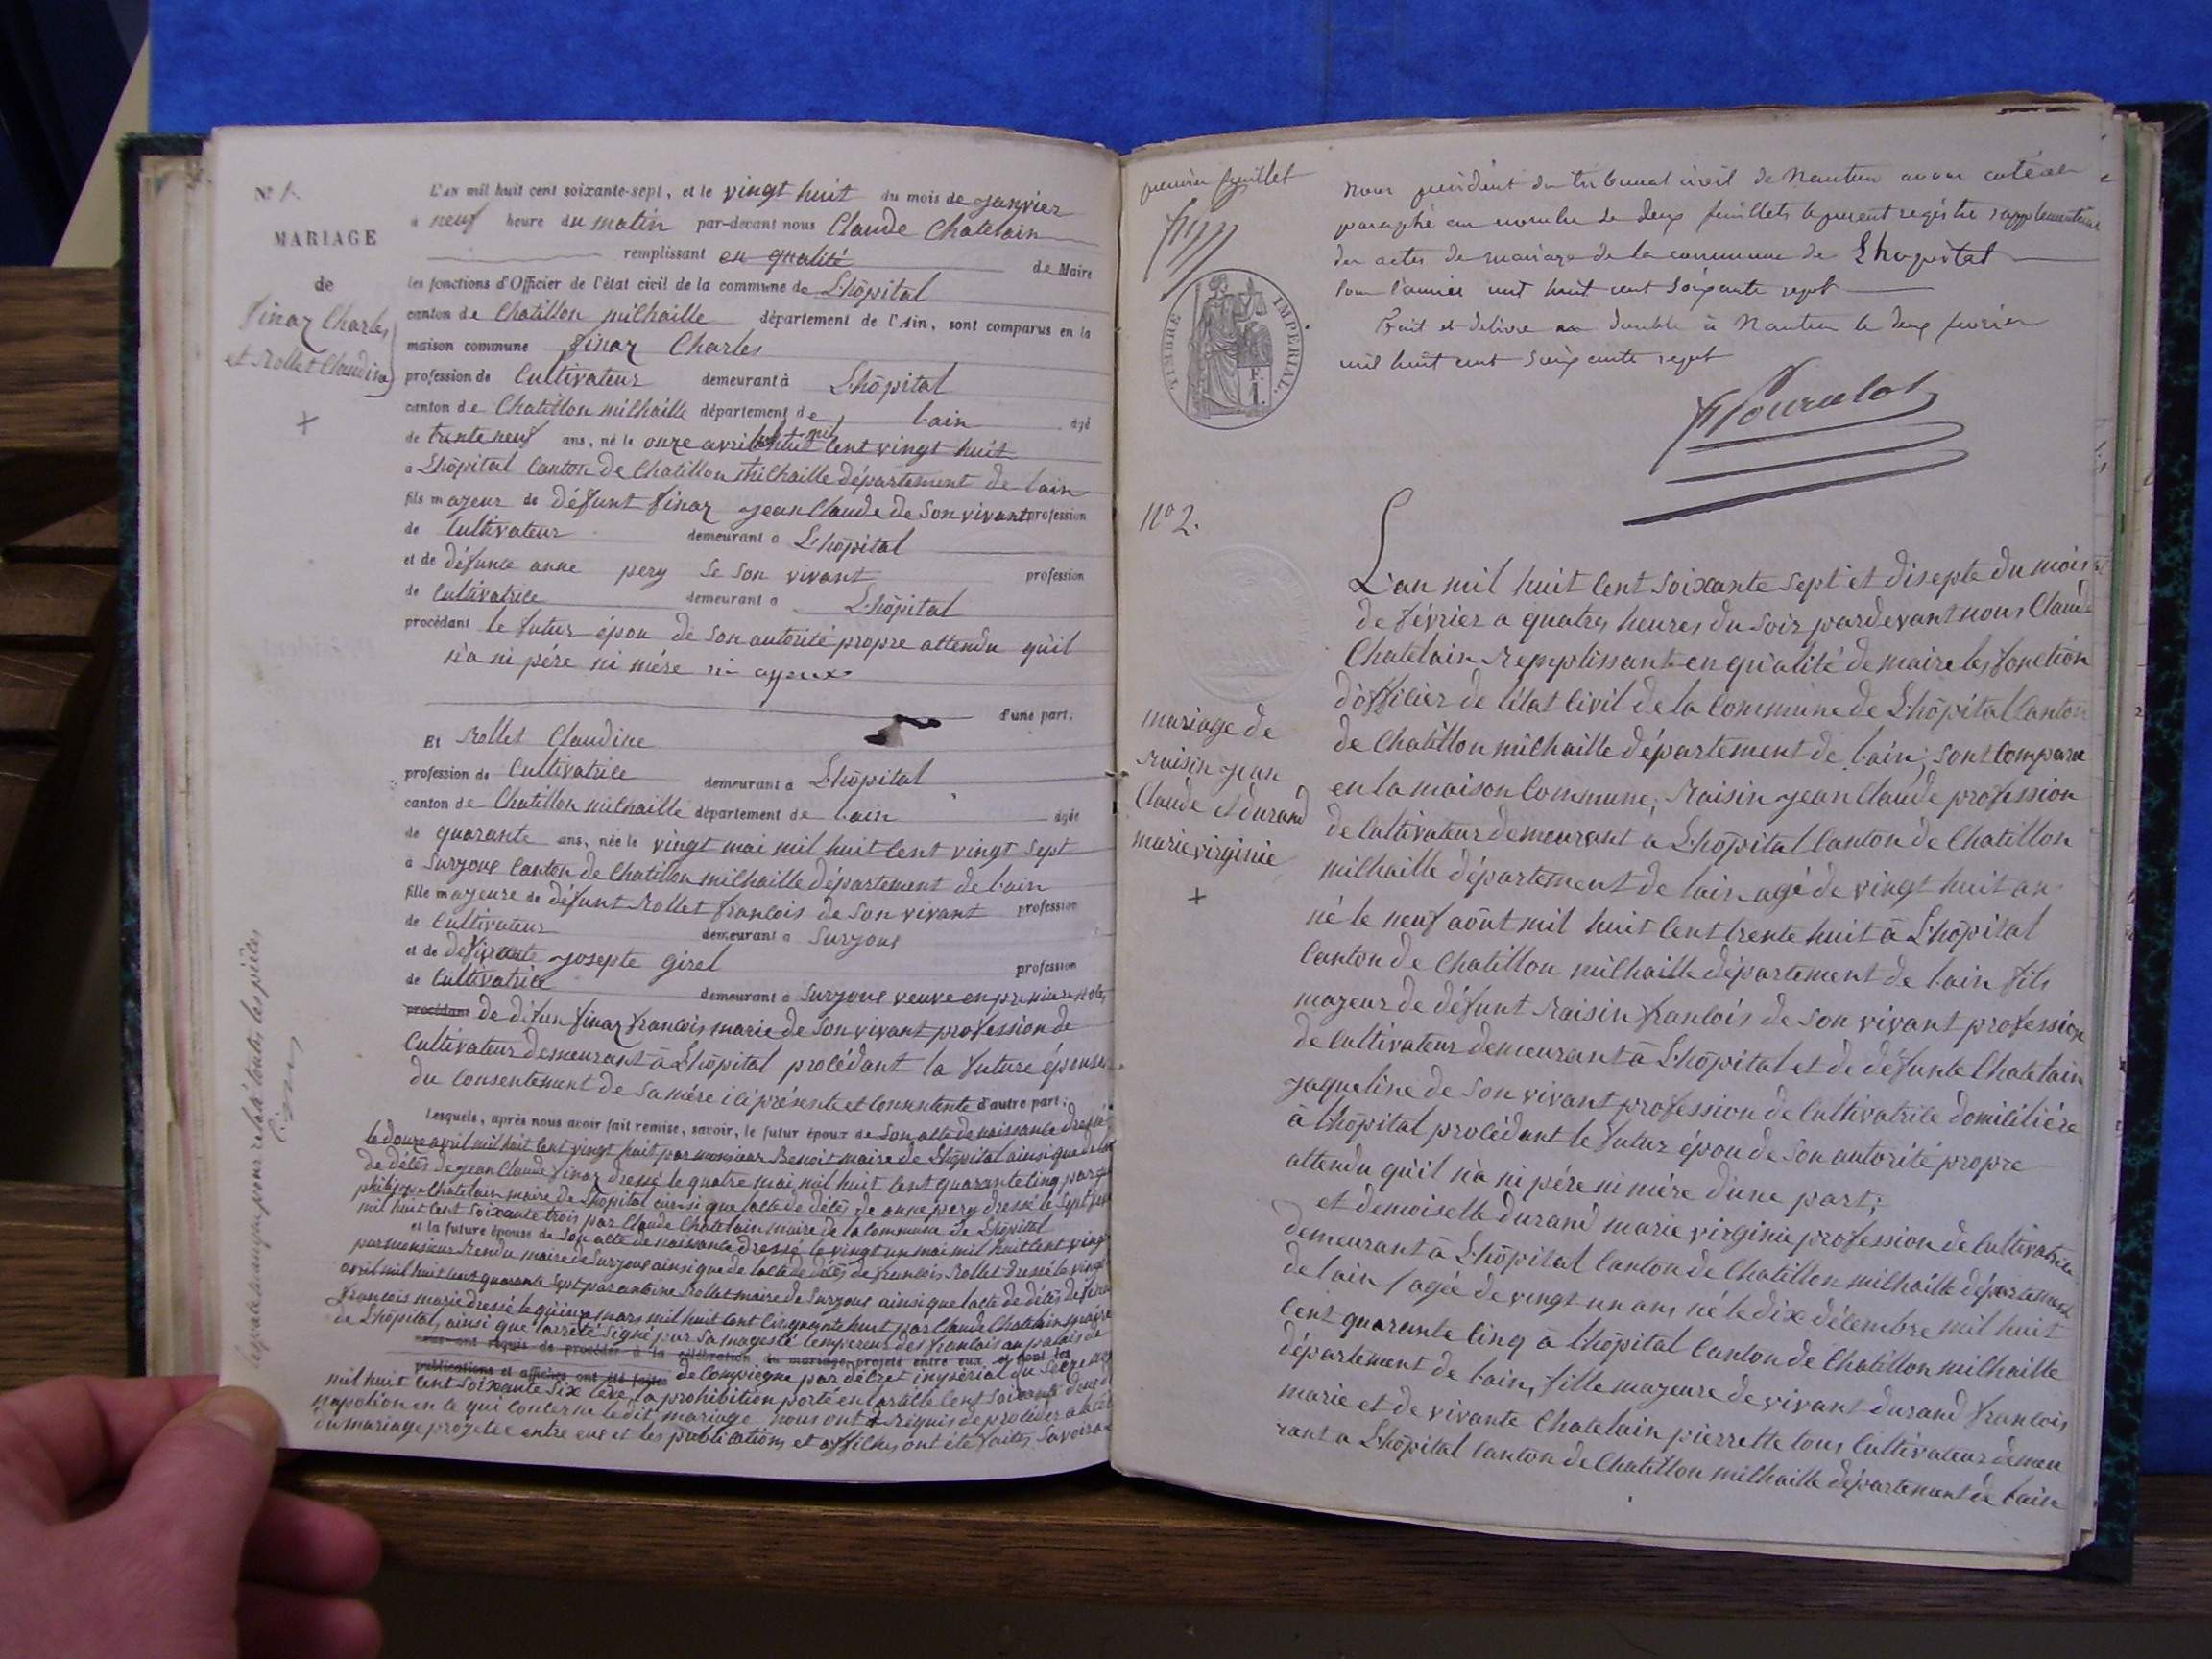 N° 1.
MARIAGE
de
Finaz Charles
et Rollet Claudine
L'an mil huit cent soixante-sept, et le vingt huit du mois de janvier
a neuf heure du matin par-devant nous Claude Chatelain
remplissant en qualité de Maire
les fonctions d'Officier de l'état civil de la commune de L'hôpital
canton de Chatillon milhaille département de l'Ain, sont comparus en la
maison commune finaz Charles
profession de Cultivateur demeurant à L'hôpital
canton de Chatillon milhaille département de lain agé
de trente neuf ans, né le onze avril mil huit Cent vingt huit
a L'hôpital Canton de Chatillon milhaille département de lain
fils majeur de défunt finaz jean Claude de Son vivant profession
de Cultivateur demeurant a L'hôpital
et de défunte anne pery de son vivant profession
de Cultivatrice demeurant a L'hôpital
procédant le futur épou de Son autorité propre attendu qu'il
n'a ni pére ni mére ni ayeux
d'une part.
Et Rollet Claudine
profession de Cultivatrice demeurant a L'hôpital
canton de Chatillon milhaille département de lain agée
de quarante ans, née le vingt mai mil huit Cent vingt sept
a Surjoux Canton de Chatillon milhaille département de lain
fille majeure de défunt Rollet françois de Son vivant profession
de Cultivateur demeurant a Surjoux
et de defunte josepte girel profession
de Cultivatrice demeurant a Surjoux veuve en premiere
procédant de défun finaz francois marie de Son vivant profession de
Cultivateur demeurant à L'hôpital procédant la future épouse
du Consentement de Sa mére ici présente et Consentente d'autre part;
Lesquels, après nous avoir fait remise, savoir, le futur époux de Son acte de naissance dressé
le douze avril mil huit Cent vingt huit par monsieur Benoit maire de L'hôpital ainsi que de
de décés de jean Claude finaz dressé le quatre mai mil huit Cent quarante Cinq par
philippe Chatelain maire de L'hopital ainsi que lacte de décés de anne pery dressé le Sept
mil huit Cent Soixante trois par Claude Chatelain maire de la Commune de L'hôpital
et la future épouse de Son acte de naissance dressé le vingt un mai mil huit Cent vingt
par monsieur Rendu maire de Surjoux ainsi que de lacte de décés de francois Rollet dressé le vingt
avril mil huit Cent quarante Sept par antoine Rollet maire de Surjoux ainsi que lacte de décés de
francois marie dressé le quinze mars mil huit Cent Cinquante huit par Claude Chatelain maire
de L'hôpital, ainsi que larrêté Signé par Sa magesté lempereur des francais au palais de
nous ont requis de procéder à la célébration du mariage projeté entre eux, et dont les
publications et affiches ont été faites de Compiegne par décret impérial du
mil huit Cent Soixante Six léve la prohibition porté en larticle Cent Soixante deux
napoléon en ce qui Concerne le dit mariage nous ont requis de procéder a la
du mariage projetée entre eus et les publications et affiches ont été faites, Savoir
premier feuillet
Nous président du tribunal civil de Nantua avons coté et
paraphé au nombre de deux feuillets le présent registre supplémentaire
des actes de mariage de la commune de L'hopital
pour l'année mil huit cent soixante sept
Fait et délivré en double à Nantua le deux février
mil huit cent soixante sept
TIMBRE IMPÉRIAL.
N° 2.
mariage de
Raisin jean
Claude et durand
marie virginie
L'an mil huit Cent Soixante Sept et disepte du mois
de février a quatres heures du Soir pardevant nous Claude
Chatelain Remplissant en qualité de maire les fonction
d'officier de létat Civil de la Commune de L'hôpital Canton
de Chatillon milhaille département de lain; Sont Comparu
en la maison Commune; Raisin jean Claude profession
de Cultivateur demeurant à L'hôpital Canton de Chatillon
milhaille département de lain agé de vingt huit an
né le neuf aôut mil huit Cent trente huit à L'hôpital
Canton de Chatillon milhaille département de lain fils
majeur de défunt Raisin francois de Son vivant profession
de Cultivateur demeurant à L'hôpital et de défunte Chatelain
jaqueline de Son vivant profession de Cultivatrice domiciliére
à l'hôpital procédant le futur épou de Son autorité propre
attendu qu'il n'a ni pére ni mére d'une part;
et demoiselle durand marie virginie profession de Cultivatrice
demeurant à L'hôpital Canton de Chatillon milhaille département
de lain agée de vingt un ans né le dix décembre mil huit
Cent quarante Cinq à L'hôpital Canton de Chatillon milhaille
département de lain, fille majeure de vivant durand francois
marie et de vivante Chatelain pierrette tous Cultivateur demeu
rant a L'hôpital Canton de Chatillon milhaille département de lain